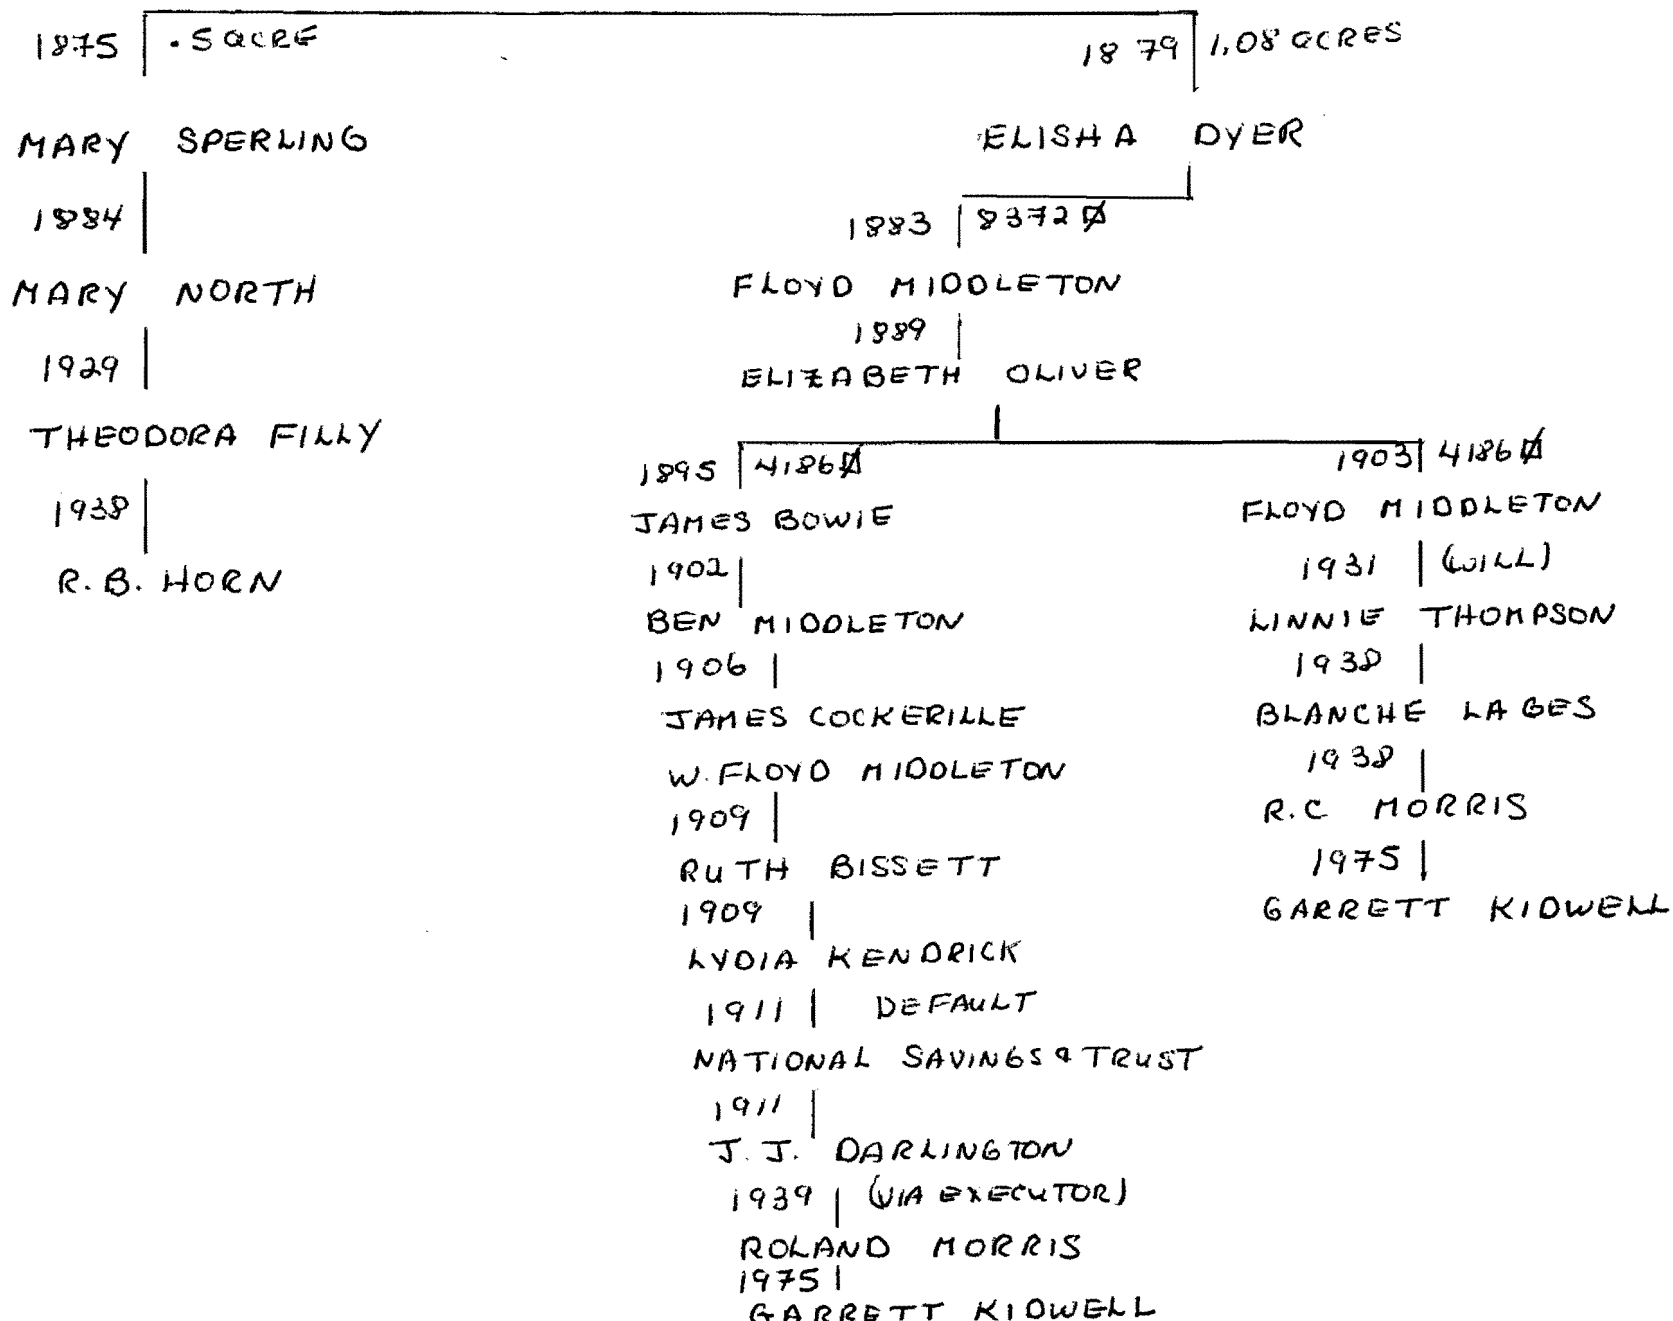 1875 .5 ACRE
1879 1.08 ACRES
MARY SPERLING
1884
MARY NORTH
1929
THEODORA FILLY
1938
R.B. HORN
ELISHA DYER
1883 8372
FLOYD MIDDLETON
1889
ELIZABETH OLIVER
1895 4186
JAMES BOWIE
1902
BEN MIDDLETON
1906
JAMES COCKERILLE
W. FLOYD MIDDLETON
1909
RUTH BISSETT
1909
LYDIA KENDRICK
1911 DEFAULT
NATIONAL SAVINGS & TRUST
1911
J.J. DARLINGTON
1939 (VIA EXECUTOR)
ROLAND MORRIS
1975
GARRETT KIDWELL
1903 4186
FLOYD MIDDLETON
1931 (WILL)
LINNIE THOMPSON
1938
BLANCHE LAGES
1938
R.C MORRIS
1975
GARRETT KIDWELL